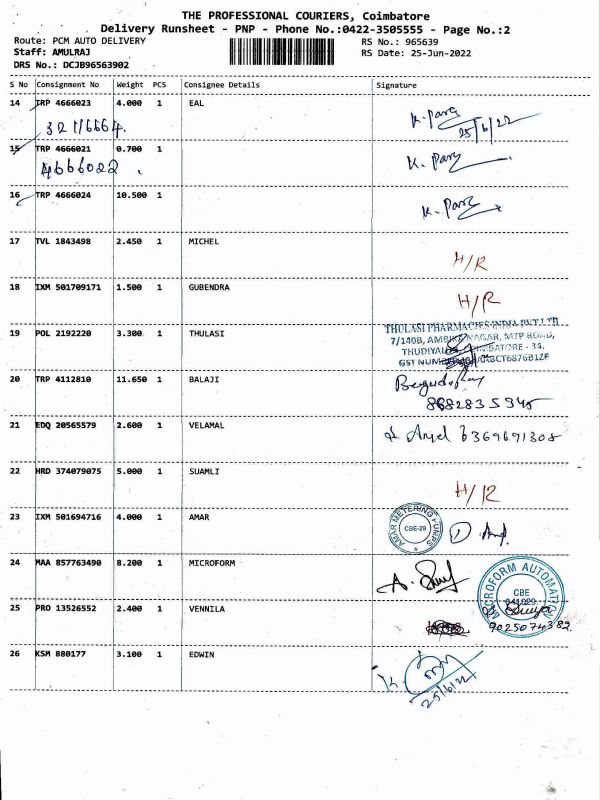 THE PROFESSIONAL COURIERS, Coimbatore
Delivery Runsheet - PNP - Phone No.:0422-3505555 - Page No.:2
Route: PCM AUTO DELIVERY RS No.: 965639
Staff: AMULRAJ RS Date: 25-Jun-2022
DRS No.: DCJB96563902
S No Consignment No Weight PCS Consignee Details Signature
14 TRP 4666023 4.000 1 EAL K. Parg
32116664. 25/6/22
15 TRP 4666021 0.700 1 K. Parg
4666022
16 TRP 4666024 10.500 1 K. Parg
17 TVL 1843498 2.450 1 MICHEL H/R
18 IXM 501709171 1.500 1 GUBENDRA H/R
THULASI PHARMACIES INDIA PVT LTD
19 POL 2192220 3.300 1 THULASI 7/140B, AMBIKA NAGAR, MTP ROAD,
THUDIYAL COIMBATORE - 34.
GST NUM
20 TRP 4112810 11.650 1 BALAJI
8682835945
21 EDQ 20565579 2.600 1 VELAMAL 6369691308
22 HRD 374079075 5.000 1 SUAMLI H/R
23 IXM 501694716 4.000 1 AMAR AMAR METERING PUMPS CBE-29
24 MAA 857763490 8.200 1 MICROFORM MICROFORM AUTOMATION CBE 641029
25 PRO 13526552 2.400 1 VENNILA
9025074382
26 KSM 880177 3.100 1 EDWIN
25/6/22